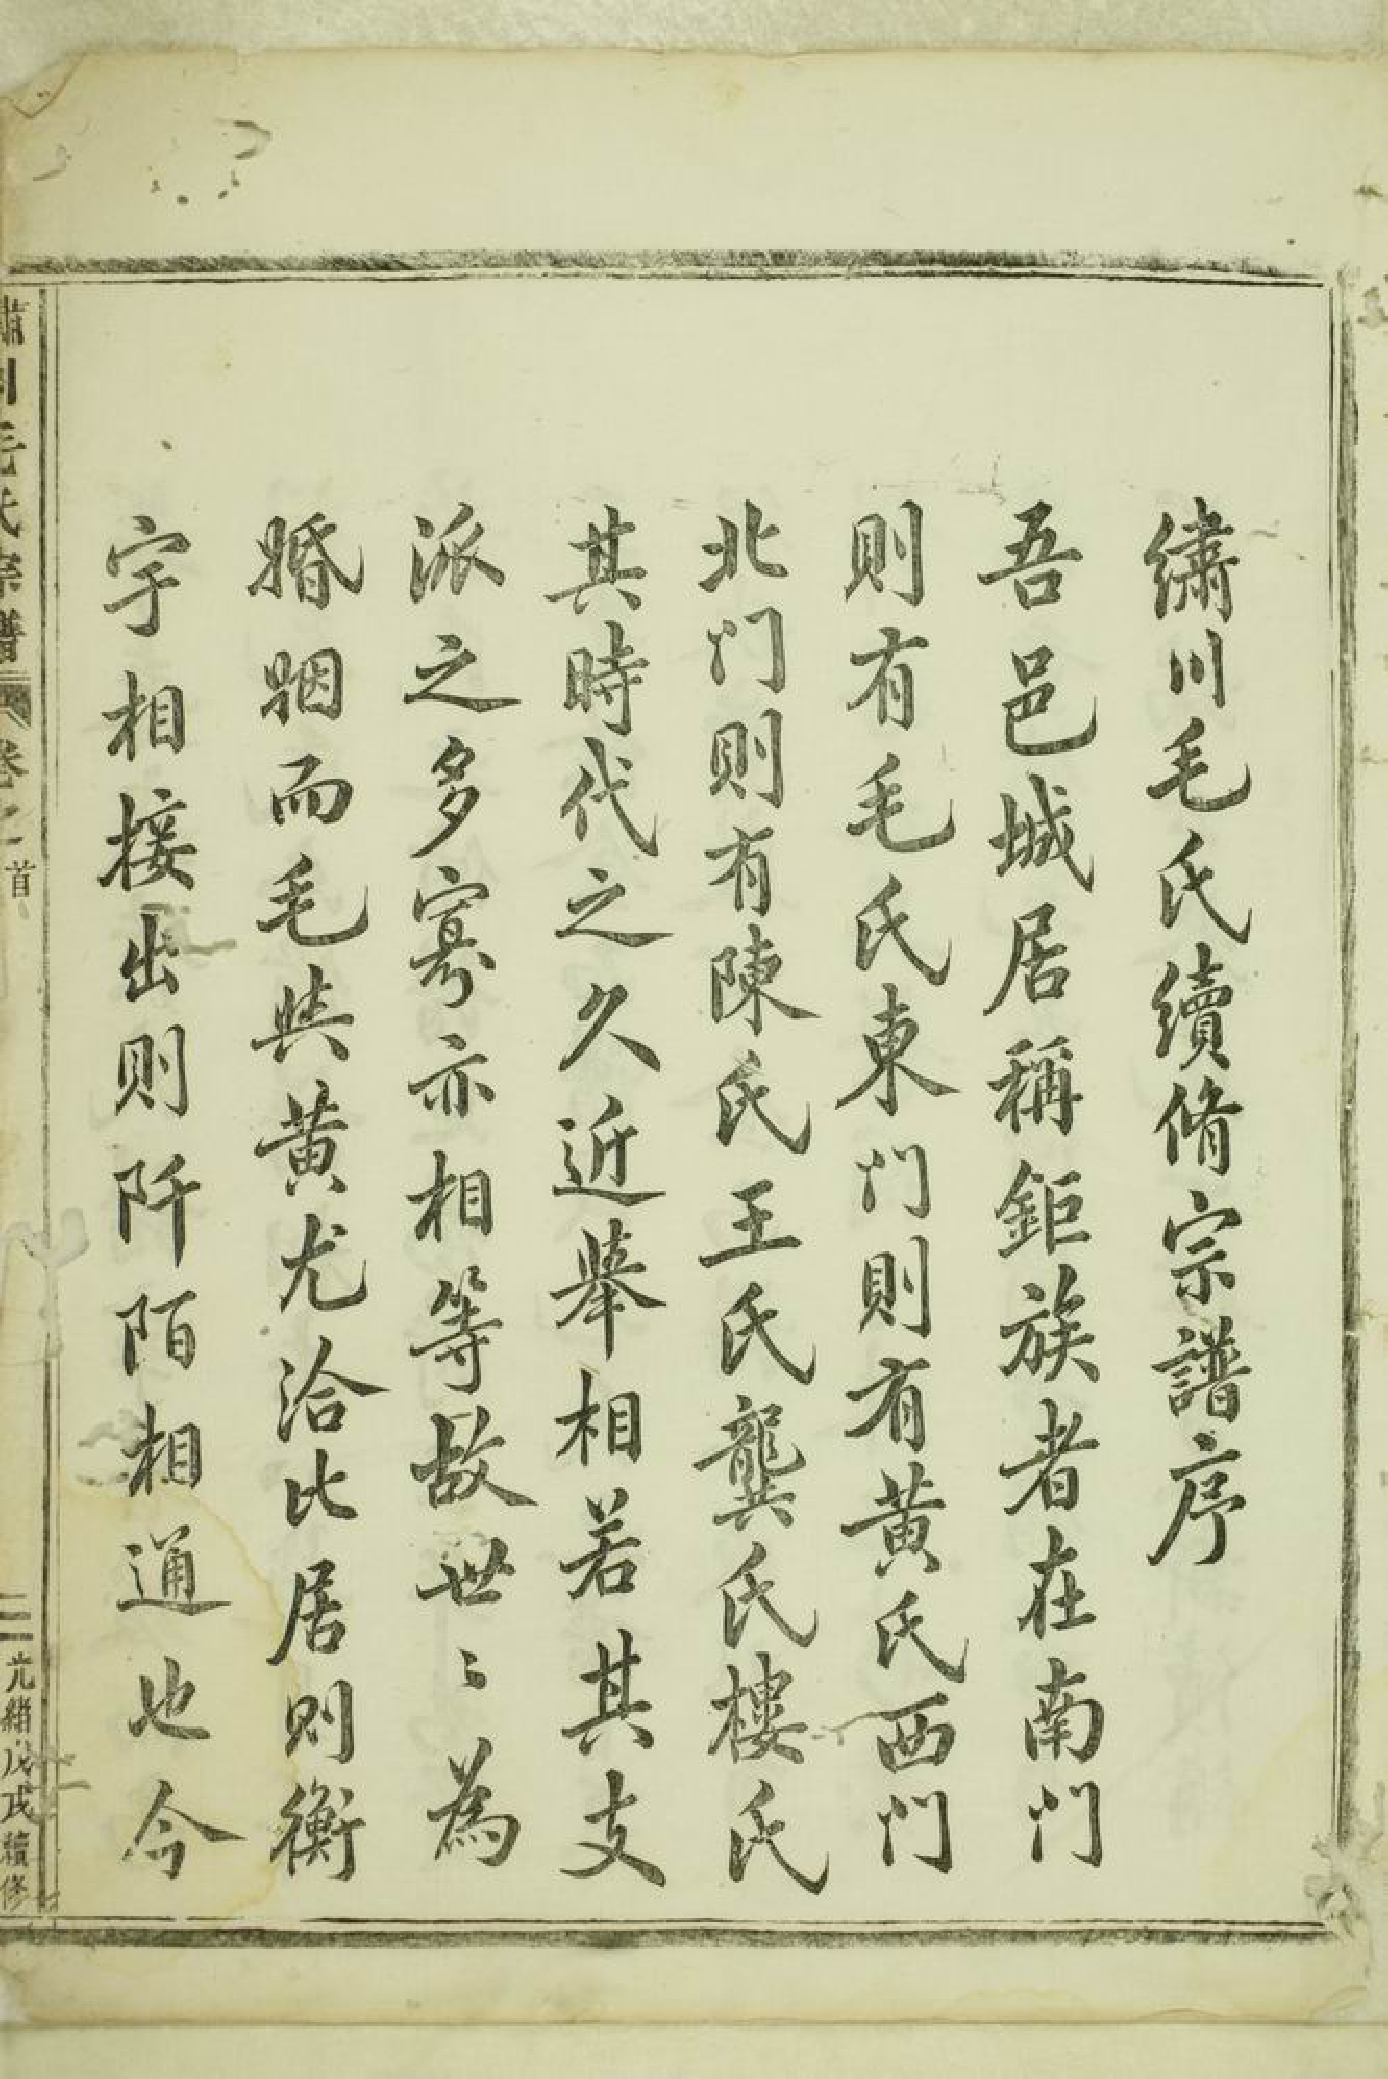 繡川毛氏續脩宗譜序
吾邑城居稱鉅族者在南门
則有毛氏東门則有黄氏西门
北门則有陳氏王氏龔氏樓氏
其時代之久近舉相若其支
派之多寡亦相等故世〻為
婚姻而毛與黄尤洽比居則衡
宇相接出則阡陌相通也今
川毛氏宗譜
卷之首
二
光緒戊戌續修